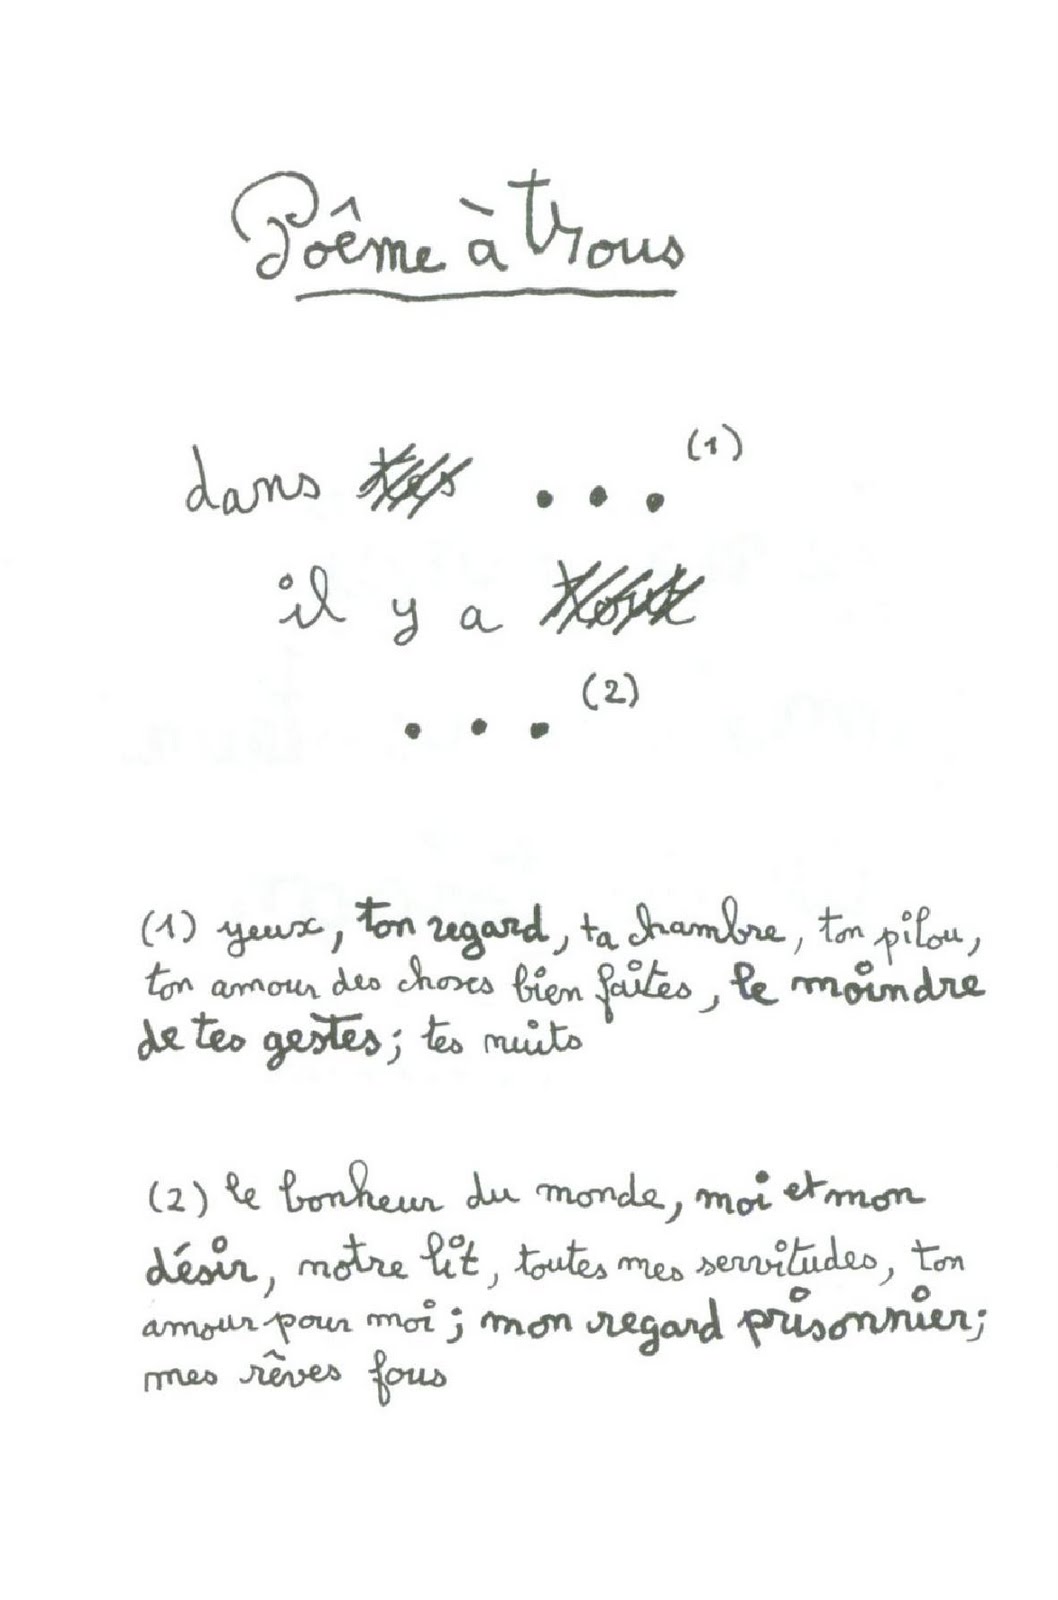 Poême à trous
dans tes ... (1)
il y a tout
... (2)
(1) yeux, ton regard, ta chambre, ton pilou,
ton amour des choses bien faites, le moindre
de tes gestes; tes nuits
(2) le bonheur du monde, moi et mon
désir, notre lit, toutes mes servitudes, ton
amour pour moi; mon regard prisonnier;
mes rêves fous